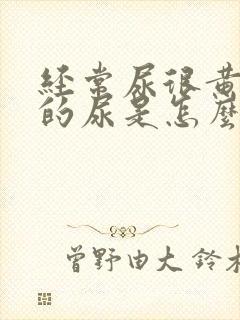 经常尿很黄
的尿是怎麼
曾野由大 鈴木